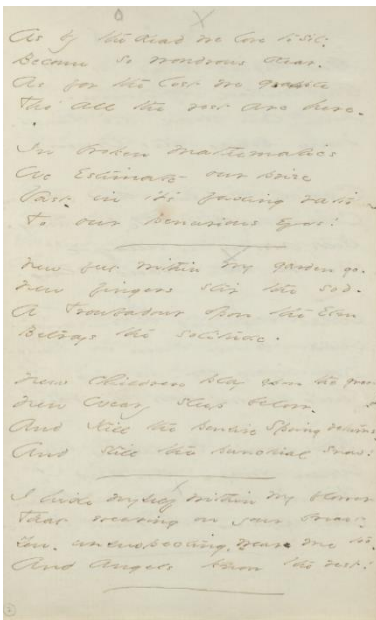 As by the dead we love to sit -
Become so wondrous dear -
As for the lost we grapple
Tho' all the rest are here -
In broken mathematics
We estimate our prize
Vast - in its fading ratio
To our penurious eyes!
New feet within my garden go -
New fingers stir the sod -
A Troubadour upon the Elm
Betrays the solitude.
New Children play upon the green -
New Weary sleep below -
And still the pensive Spring returns -
And still the punctual snow!
I hide myself within my flower
That wearing on your breast -
You - unsuspecting, wear me too -
And angels know the rest!